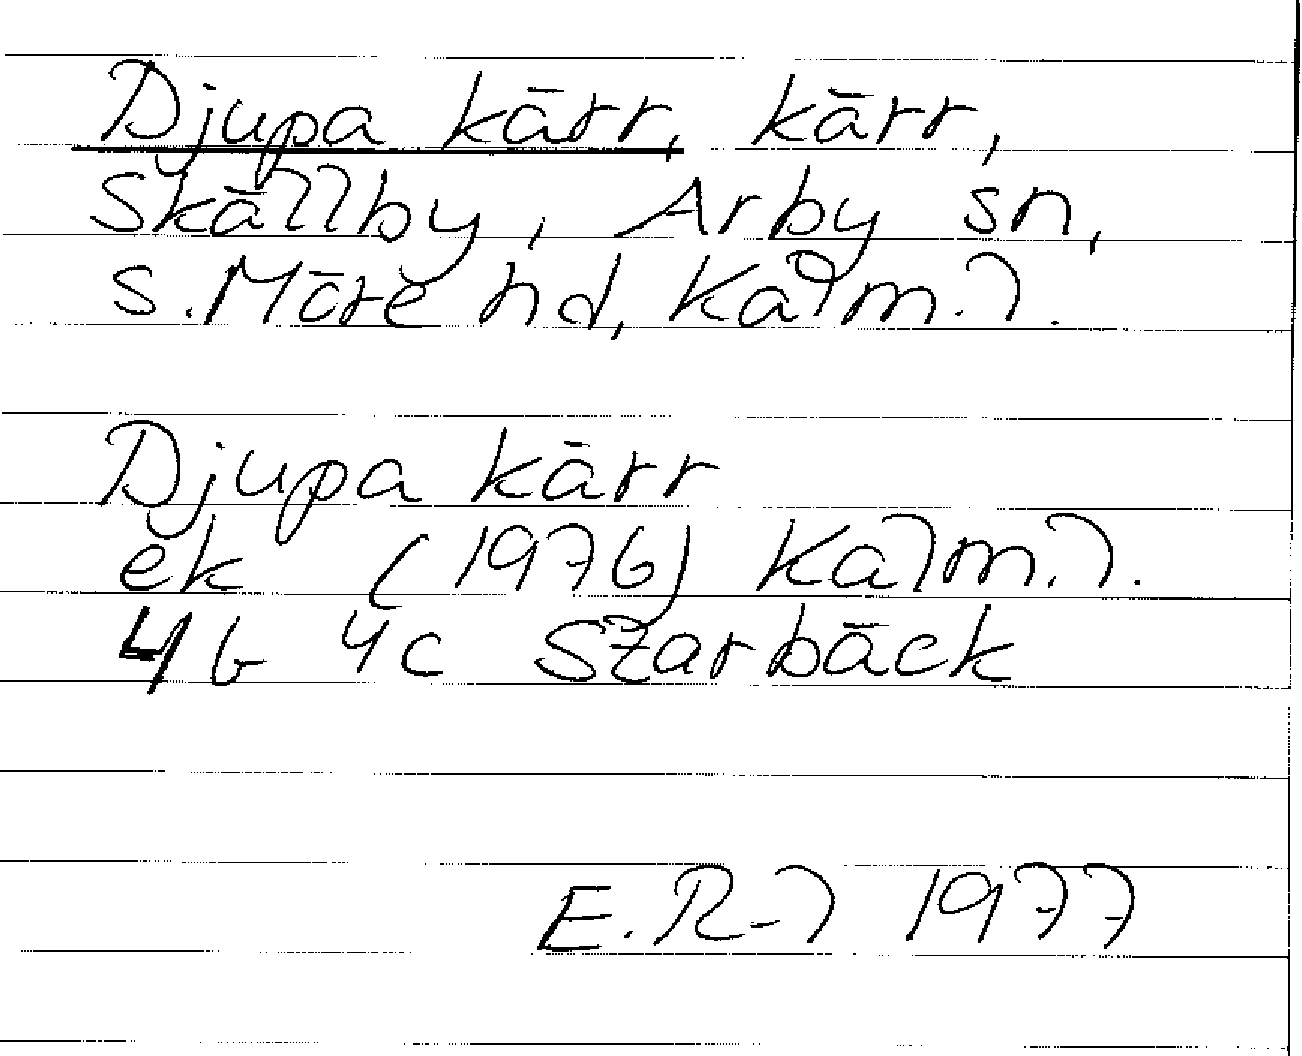 Djupa kärr, kärr,
Skällby, Arby sn,
S. Möre hd, Kalm. l.
Djupa kärr
ek (1976) Kalm. l.
4G 4c Szarbäck
E. R-l 1977